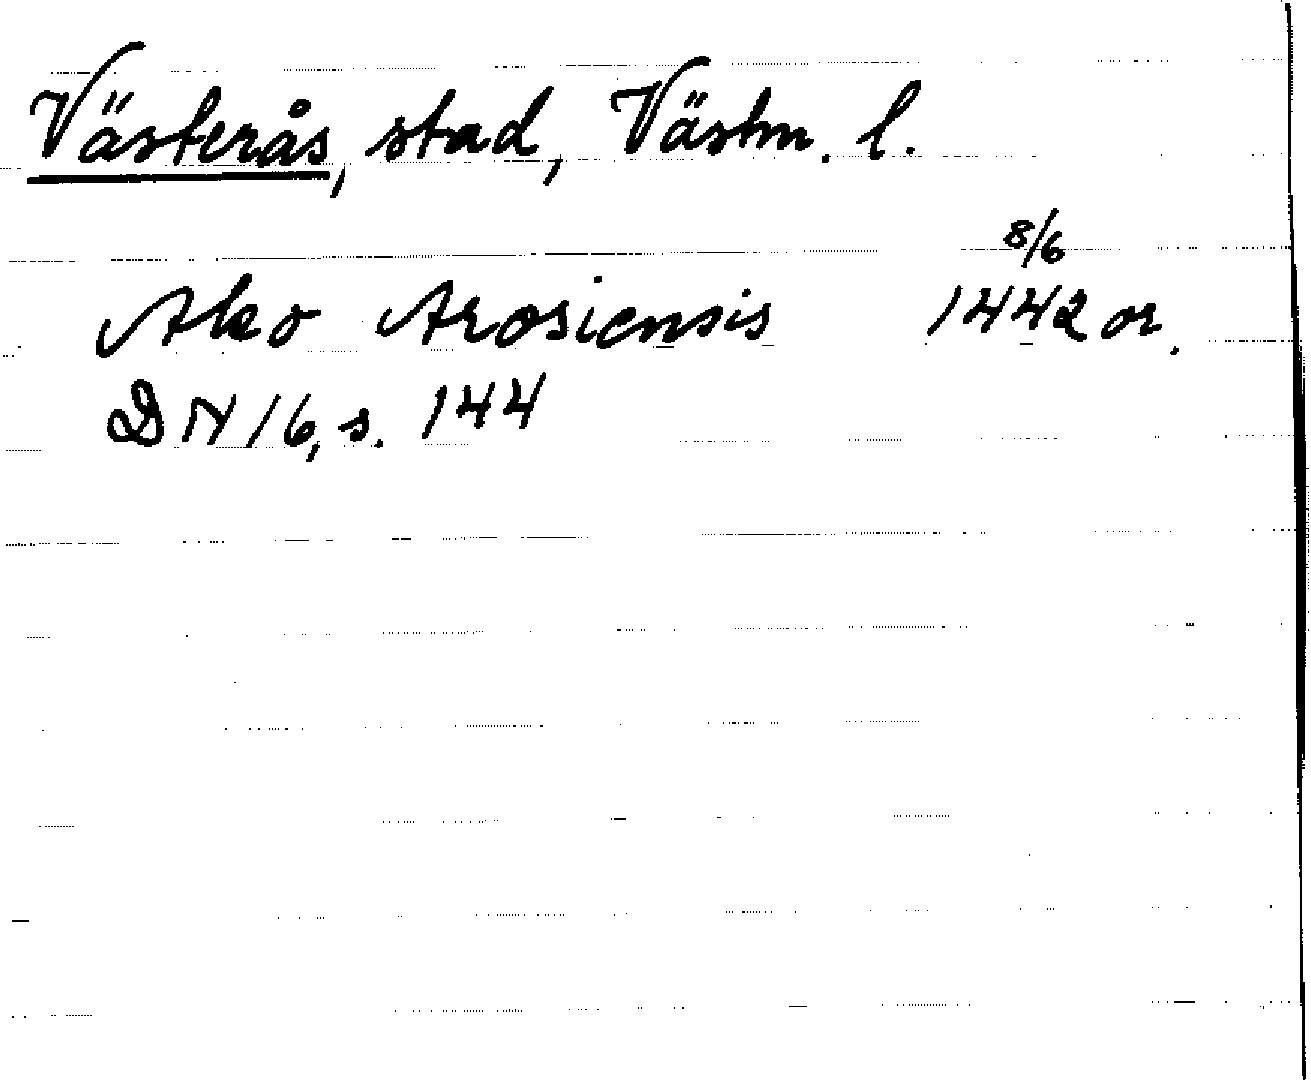 Västerås, stad, Västm. l.
8/6
Ako Arosiensis 1442 or.
DN 16, s. 144